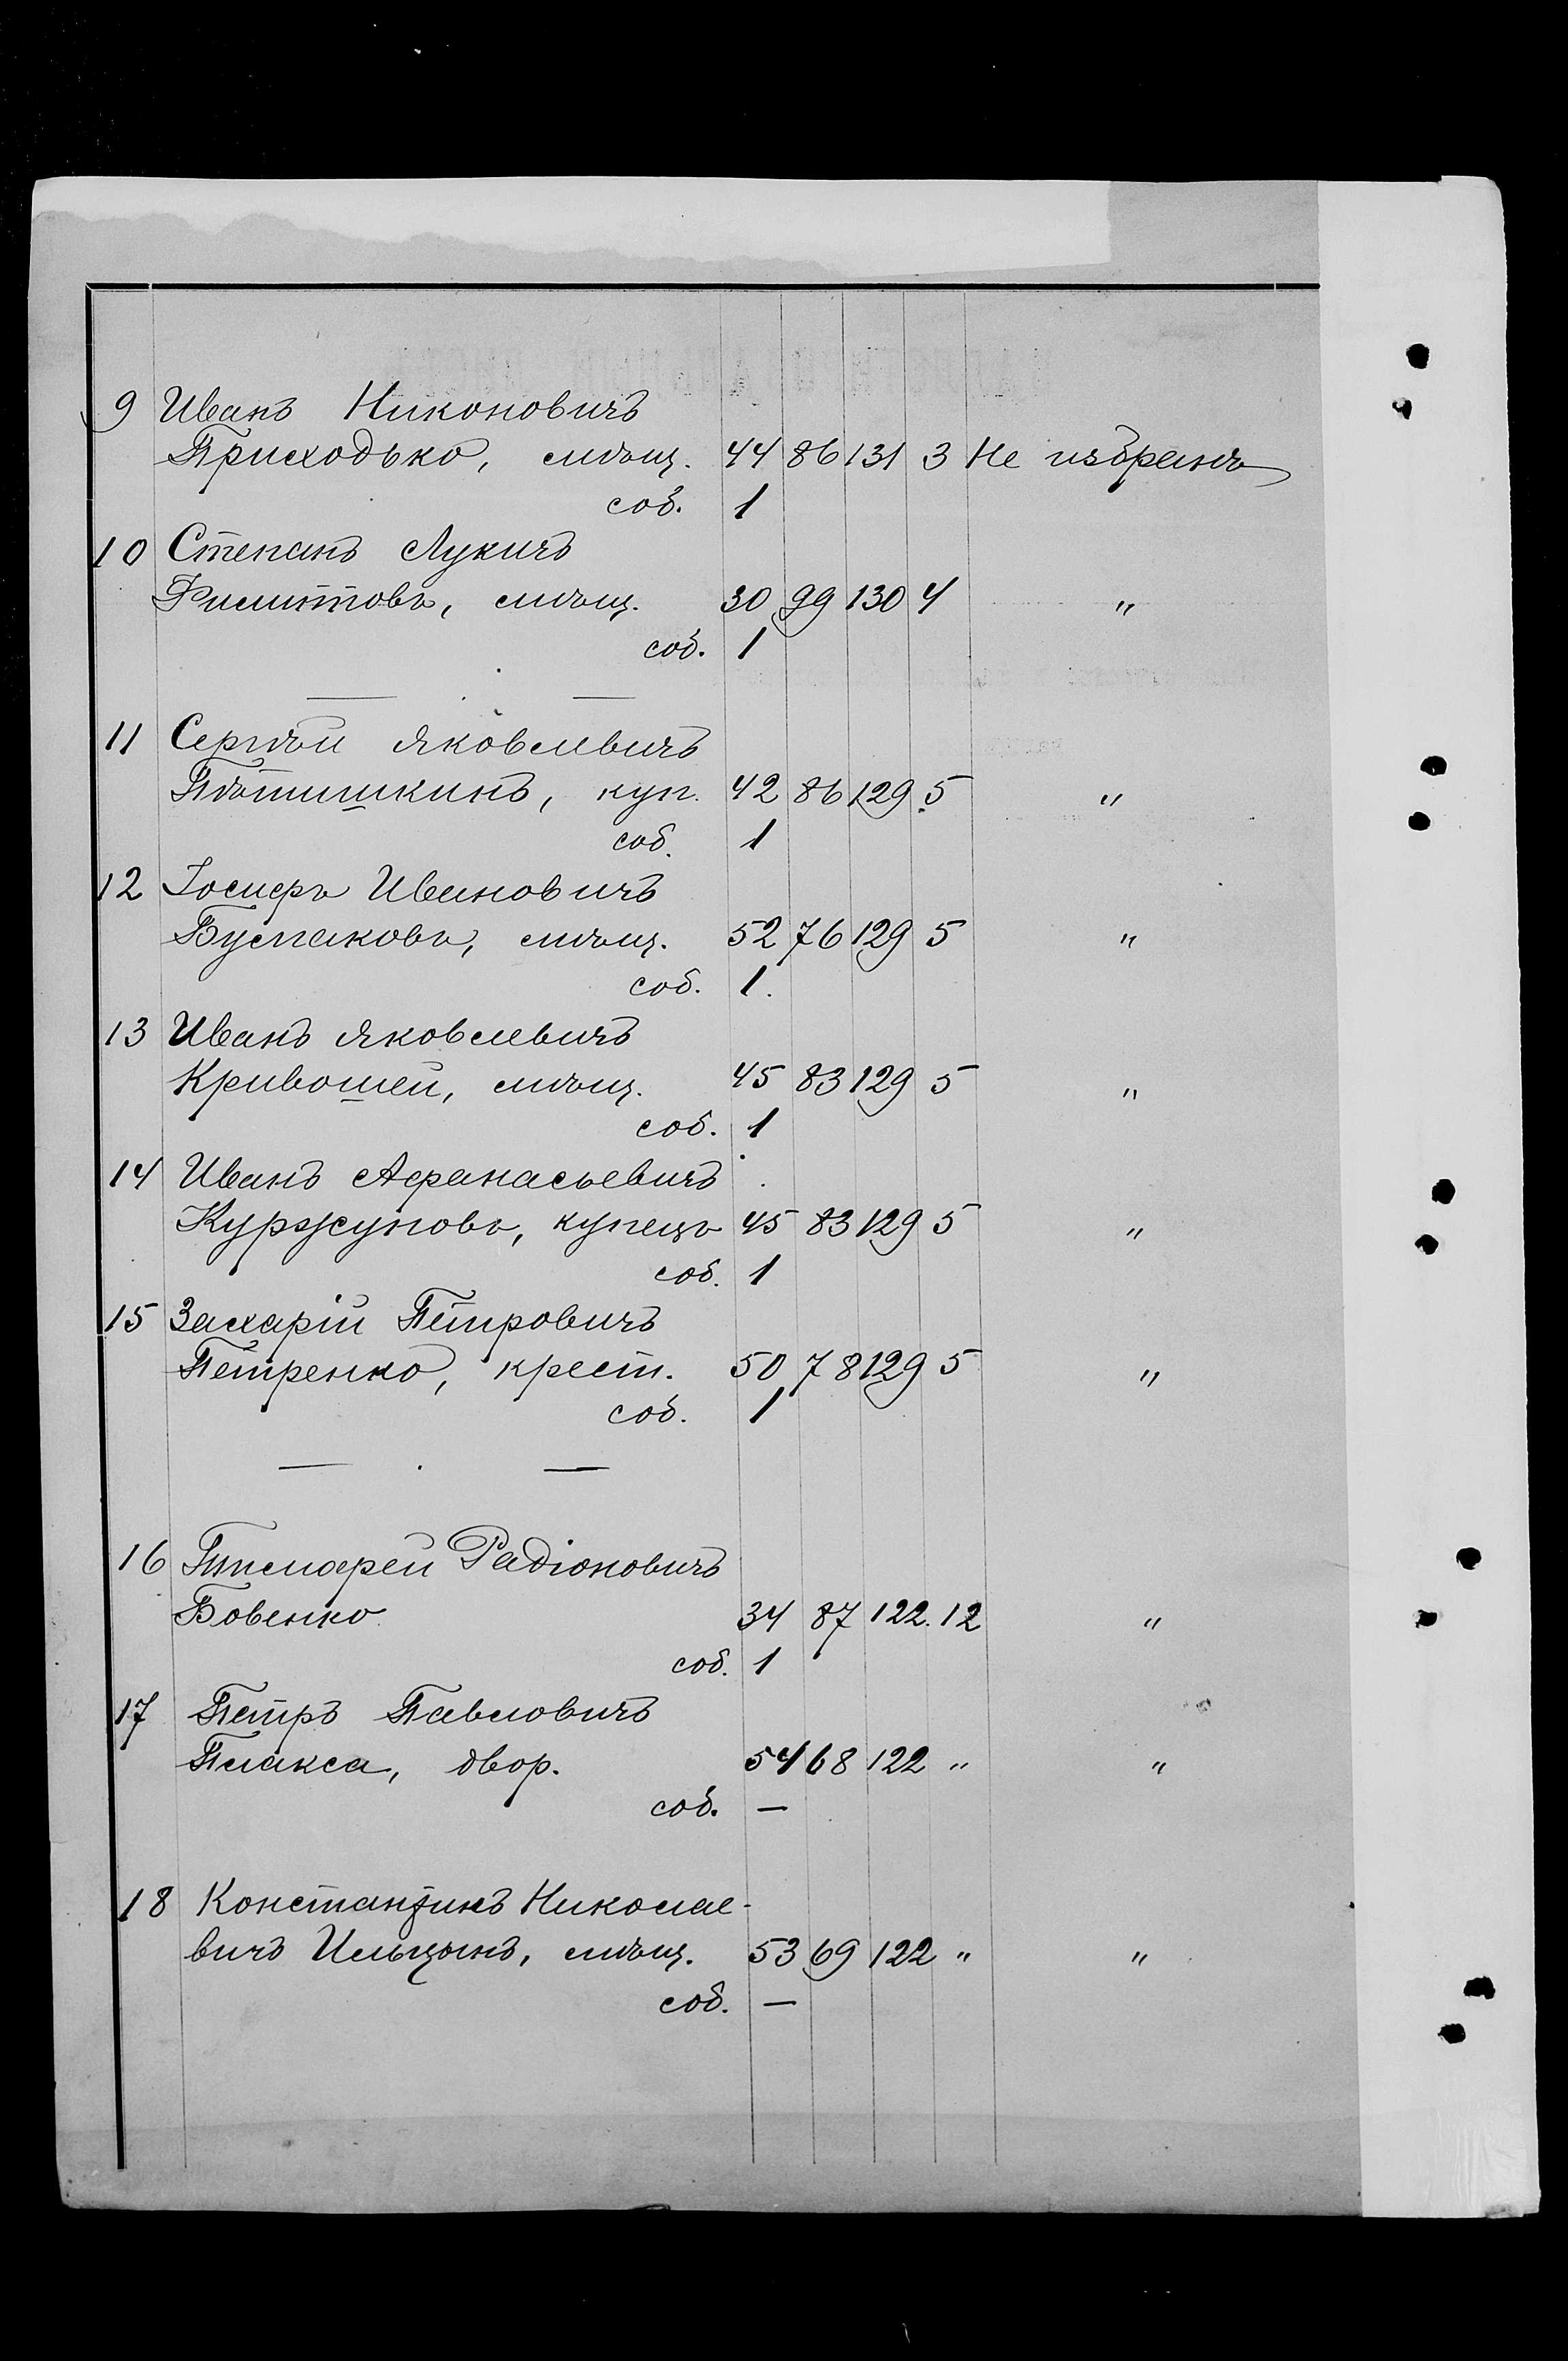 9 Иванъ Никоновичъ
Приходько, мѣщ. 44 86 131 3 Не избранъ
соб. 1
10 Степанъ Лукичъ
Филиптовъ, мѣщ. 30 99 130 4 "
соб. 1
11 Сергѣй Яковлевичъ
Пѣтишкинъ, куп. 42 86 129 5 "
соб. 1
12 Іосифъ Ивановичъ
Буслаковъ, мѣщ. 52 76 129 5 "
соб. 1.
13 Иванъ Яковлевичъ
Кривошей, мѣщ. 45 83 129 5 "
соб. 1
14 Иванъ Афанасьевичъ
Куржуповъ, купецъ 45 83 129 5 "
соб. 1
15 Захарій Петровичъ
Петренко, крест. 50 78 129 5 "
соб. 1
16 Радіоновичъ
Бовенко 34 87 122. 12 "
соб. 1
17 Петръ Павловичъ
Плакса, двор. 54 68 122 " "
соб. —
18 Константинъ Николае-
вичъ Ильзынъ, мѣщ. 53 69 122 " "
соб. —